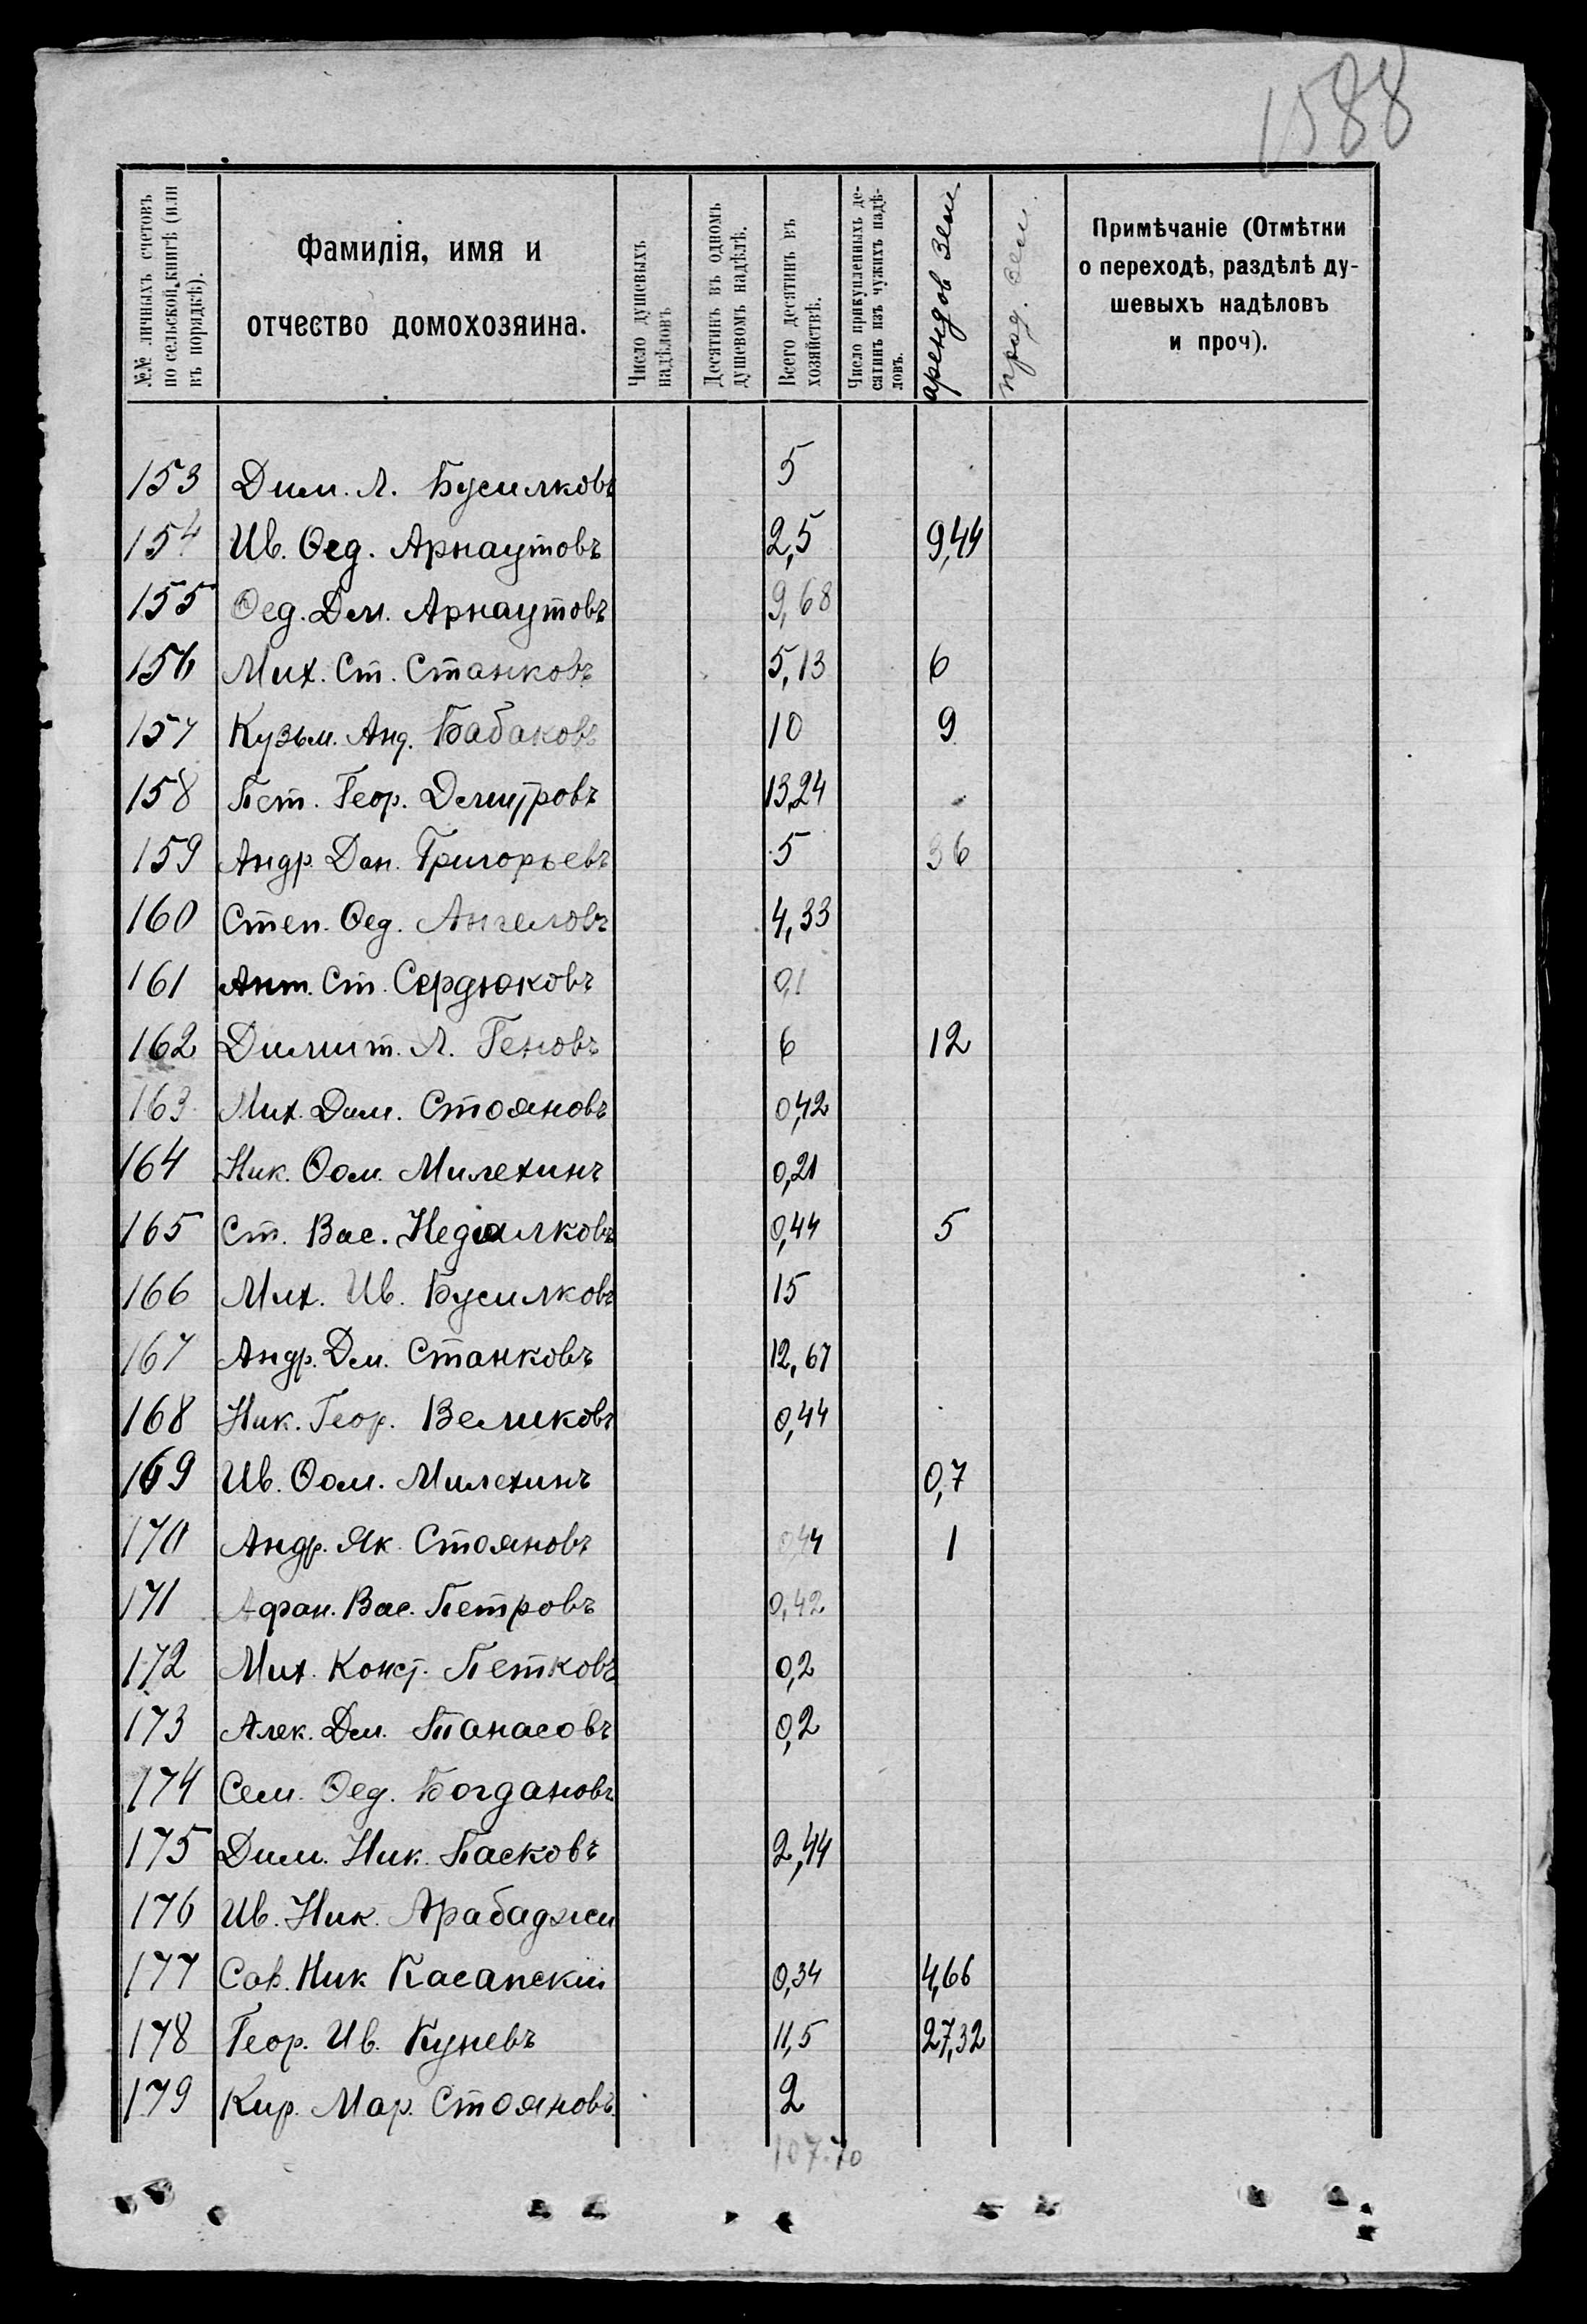 1588
№№ личныхъ счетовъ по сельской книгѣ (или въ порядкѣ).
Фамилія, имя и отчество домохозяина.
Число душевыхъ надѣловъ
Десятинъ въ одномъ душевомъ надѣлѣ.
Всего десятинъ въ хозяйствѣ.
Число прикупленныхъ десятинъ изъ чужихъ надѣловъ.
арендов зем
прод. зем.
Примѣчаніе (Отмѣтки о переходѣ, раздѣлѣ душевыхъ надѣловъ и проч).
153 Дим. Л. Бусилковъ 5
154 Ив. Ѳед. Арнаутовъ 2,5 9,44
155 Ѳед. Дм. Арнаутовъ 9,68
156 Мих. Ст. Станковъ 5,13 6
157 Кузьм. Анд. Бабаковъ 10 9
158 Пет. Геор. Демитровъ 13,24
159 Андр. Дан. Григорьевъ 5 36
160 Степ. Ѳед. Ангеловъ 4,33
161 Ант. Ст. Сердюковъ 0,1
162 Димит. Л. Геновъ 6 12
163 Мих. Дим. Стояновъ 0,42
164 Ник. Ѳом. Милехинъ 0,21
165 Ст. Вас. Недялковъ 0,44 5
166 Мих. Ив. Бусилковъ 15
167 Андр. Дм. Станковъ 12,67
168 Ник. Геор. Великовъ 0,44
169 Ив. Ѳом. Милехинъ 0,7
170 Андр. Як. Стояновъ 0,44 1
171 Афан. Вас. Петровъ 0,42
172 Мих. Конст. Петковъ 0,2
173 Алек. Дм. Танасовъ 0,2
174 Сем. Ѳед. Богдановъ
175 Дим. Ник. Пасковъ 2,44
176 Ив. Ник. Арабаджи
177 Сав. Ник Касапскій 0,34 4,66
178 Геор. Ив. Куневъ 11,5 27,32
179 Кир. Мар. Стояновъ 2
107.70